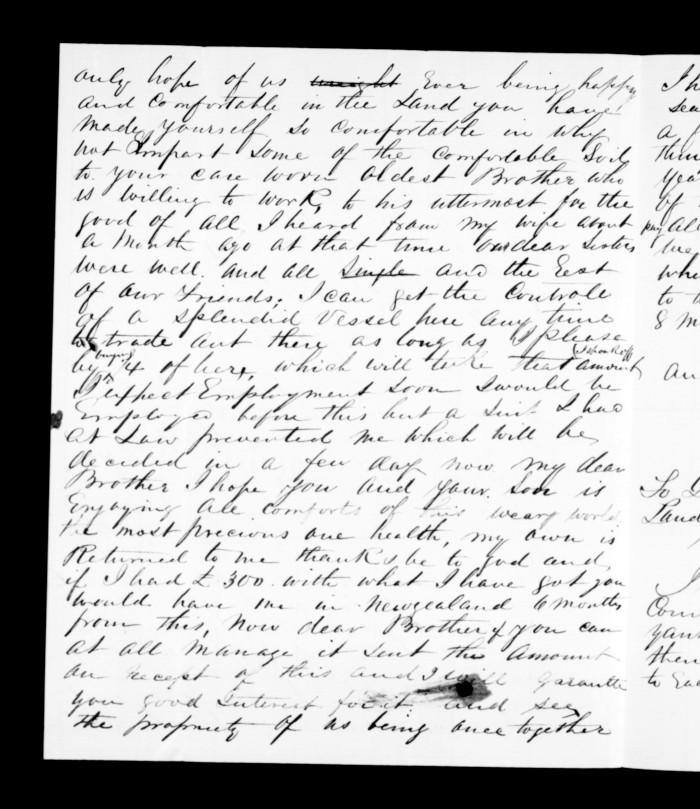 only hope of us might Ever being happy
and comfortable in the Land you have
made yourself so comfortable in why
not Impart some of the comfortable Soil
to your care woven oldest Brother who
is willing to work, to his uttermost for the
good of all I heard from my wife about
a month ago at that time our dear sisters
were well. and all Single and the Rest
of our Friends; I can get the Controle
of a splendid Vessel here any time
to trade out there as long as I please
by buying 1/4 of her, which will take that amount
I expect Employment soon I would be
Employed before this but a Suit I had
at Law prevented me which will be
decided in a few day now my dear
Brother I hope you and your son is
Enjoying all comforts of this weary world
the most precious one health, my own is
Returned to me thanks be to god and
if I had £ 300. with what I have got you
would have me in Newzealand 6 months
from this, Now dear Brother if you can
at all manage it sent the amount
on recept of this and I will garantee
you good Interest for it and see
the propriety of us being once together
To
Land
then